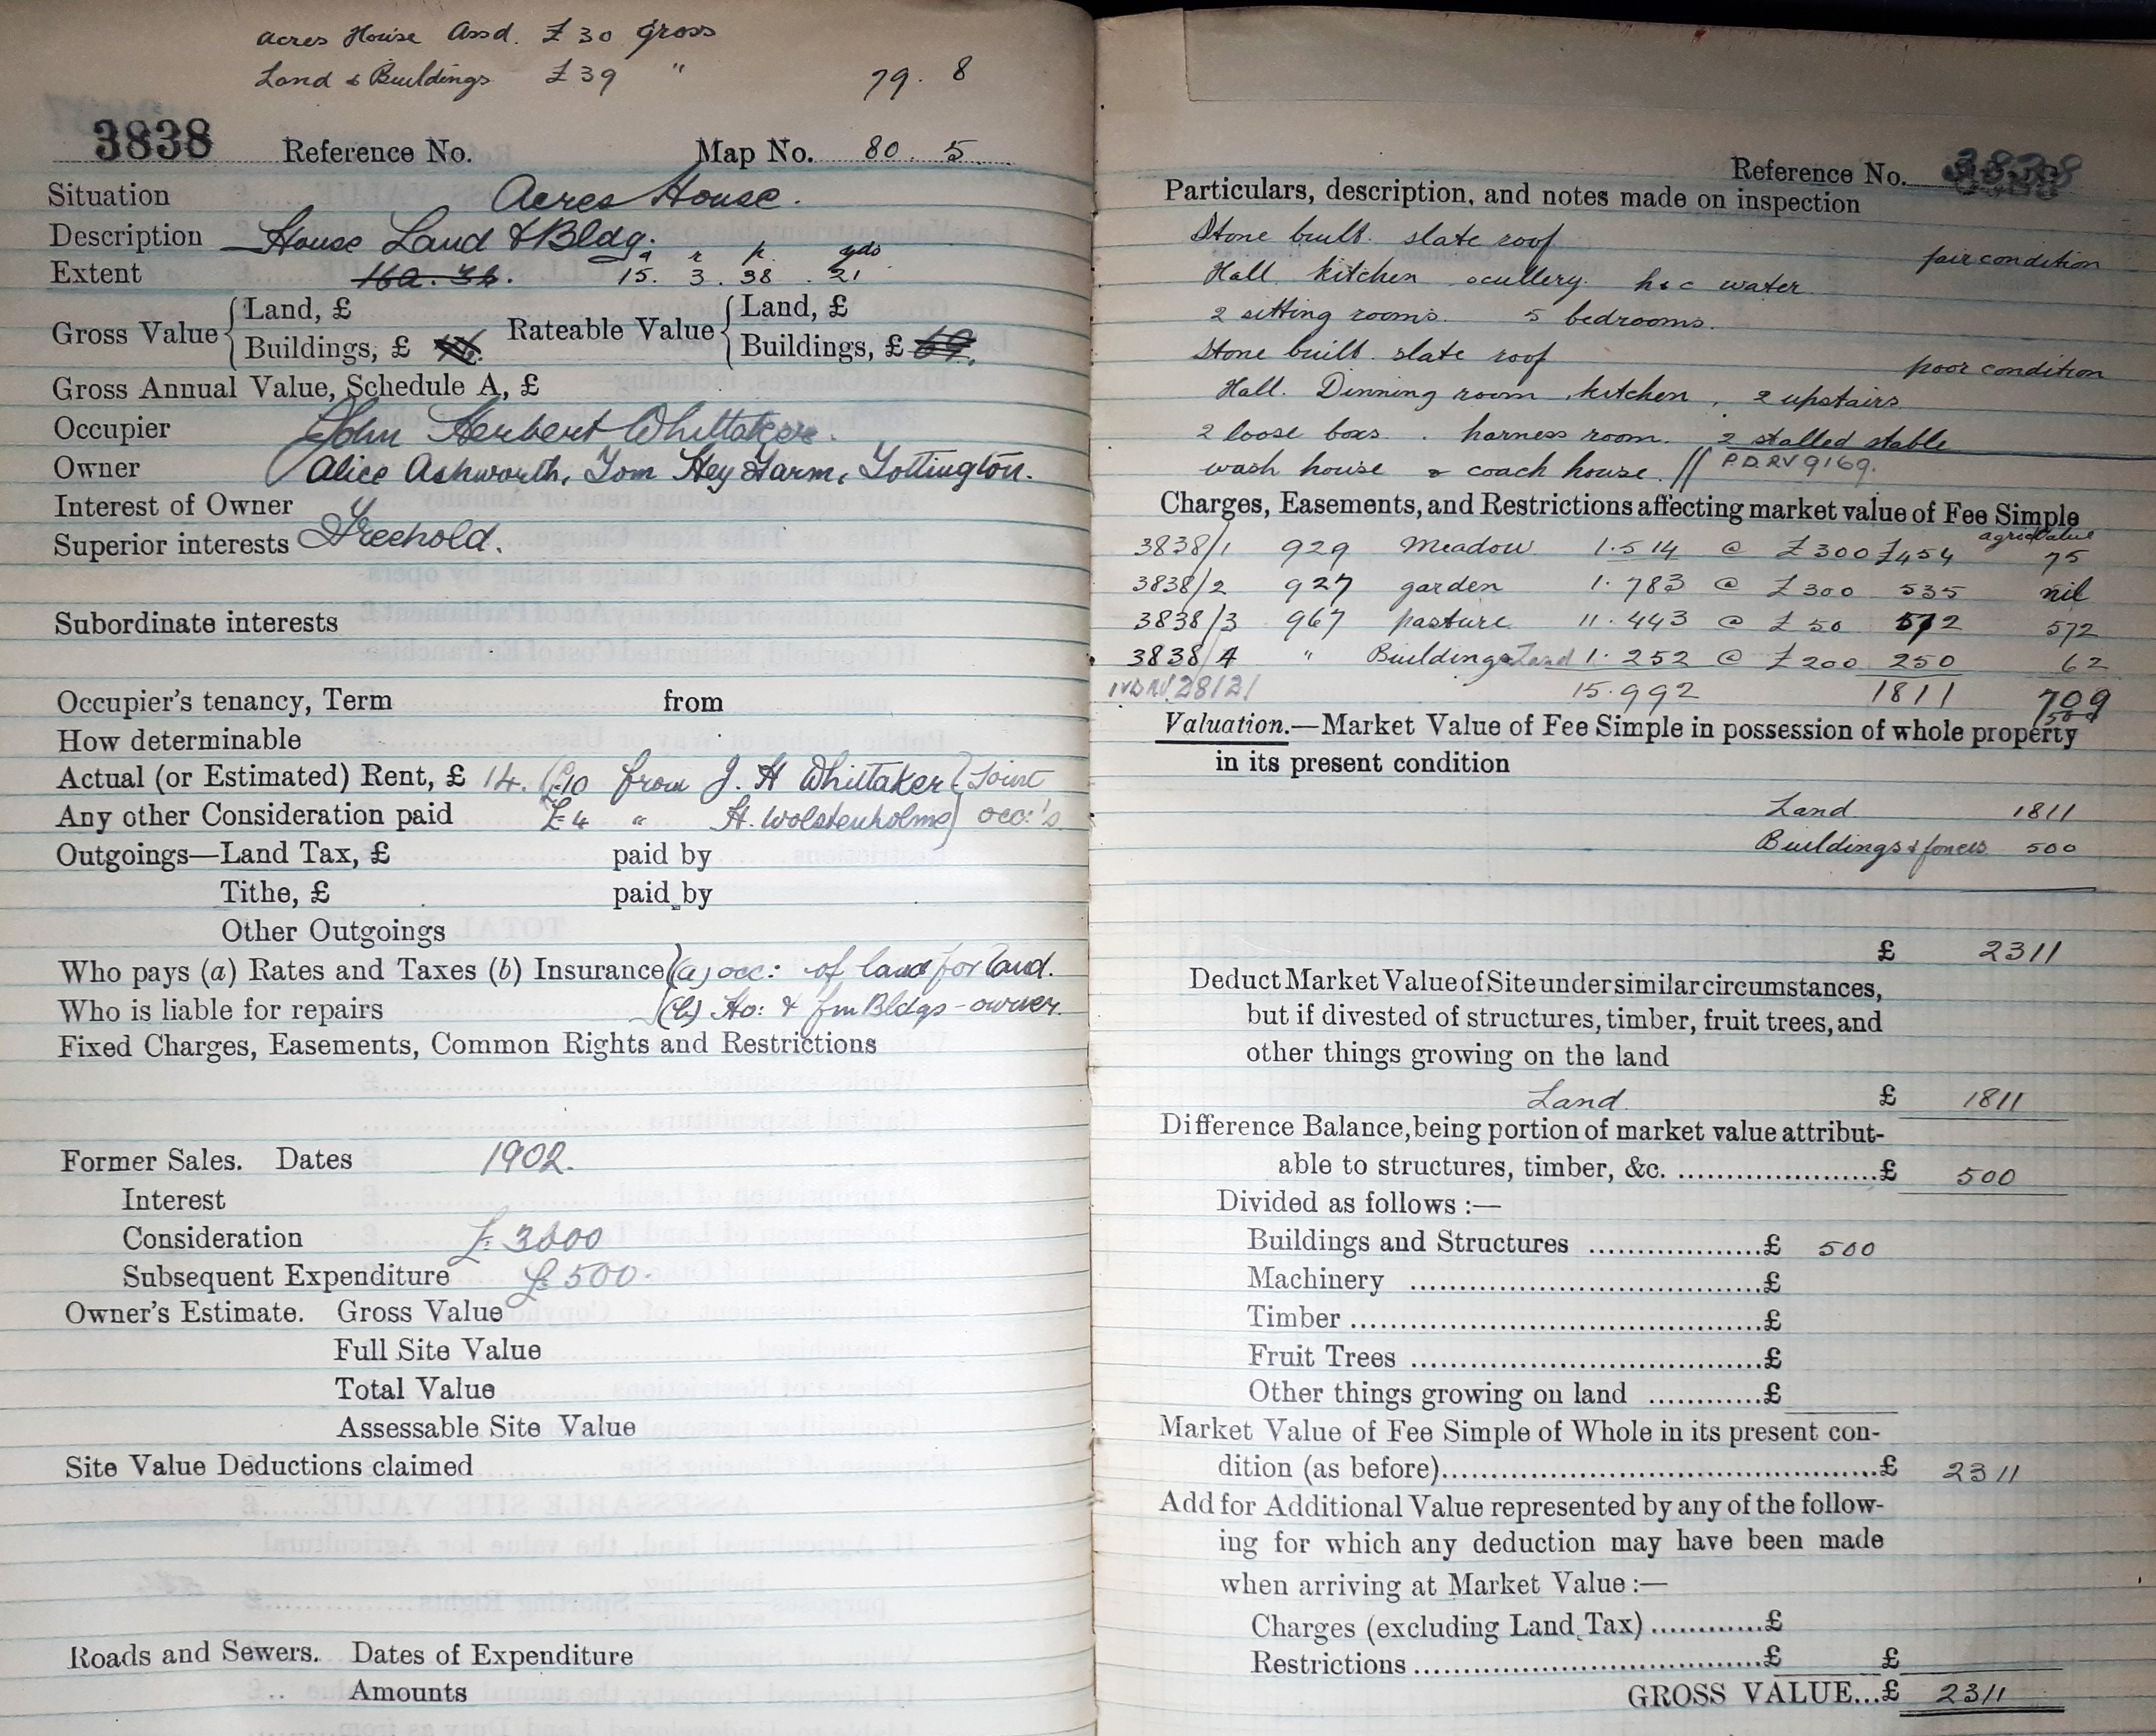 acres House Assd. £30 gross
Land & Buildings £39 " 79. 8
3838 Reference No. Map No. 80. 5
Situation Acres House.
Description House Land & Bldg.
a r p. yds
Extent 16a. 3r. 15. 3. 38 . 21
Gross Value { Land, £ Rateable Value { Land, £
Buildings, £ Buildings, £ 69.
Gross Annual Value, Schedule A, £
Occupier John Herbert Whittaker.
Owner Alice Ashworth, Tom Hey Farm, Tottington.
Interest of Owner
Superior interests Freehold.
Subordinate interests
Occupier's tenancy, Term from
How determinable
Actual (or Estimated) Rent, £ 14. (£10 from J. H Whittaker } Joint
Any other Consideration paid £4 " H. Wolstenholme) occ:'s
Outgoings—Land Tax, £ paid by
Tithe, £ paid by
Other Outgoings
Who pays (a) Rates and Taxes (b) Insurance (a) occ: of land for land.
Who is liable for repairs (b) Ho: & fm Bldgs - owner.
Fixed Charges, Easements, Common Rights and Restrictions
Former Sales. Dates 1902.
Interest
Consideration £
Subsequent Expenditure £500.
Owner's Estimate. Gross Value
Full Site Value
Total Value
Assessable Site Value
Site Value Deductions claimed
Roads and Sewers. Dates of Expenditure
Amounts
Reference No. 3838
Particulars, description, and notes made on inspection
Stone built. slate roof
fair condition
Hall. kitchen scullery. h & c water
2 sitting rooms. 5 bedrooms.
Stone built. slate roof
poor condition
Hall. Dinning room, kitchen, 2 upstairs
2 loose boxs. harness room. 2 stalled stable
wash house & coach house. // P.D. RV 9169.
Charges, Easements, and Restrictions affecting market value of Fee Simple
agric Value
3838/1 929 Meadow 1.514 @ £300 £454 75
3838/2 927 garden 1.783 @ £300 535 nil
3838/3 967 pasture 11.443 @ £50 572 572
3838/4 " Buildings Land 1.252 @ £200 250 62
15.992 1811 709
Valuation.—Market Value of Fee Simple in possession of whole property
in its present condition
Land 1811
Buildings & fences 500
£ 2311
Deduct Market Value of Site under similar circumstances,
but if divested of structures, timber, fruit trees, and
other things growing on the land
Land. £ 1811
Difference Balance, being portion of market value attribut-
able to structures, timber, &c. ........................£ 500
Divided as follows :—
Buildings and Structures ....................£ 500
Machinery ........................................£
Timber ................................................£
Fruit Trees ........................................£
Other things growing on land ............£
Market Value of Fee Simple of Whole in its present con-
dition (as before)..................................................£ 2311
Add for Additional Value represented by any of the follow-
ing for which any deduction may have been made
when arriving at Market Value :—
Charges (excluding Land Tax) ............£
Restrictions ........................................£ £
GROSS VALUE...£ 2311